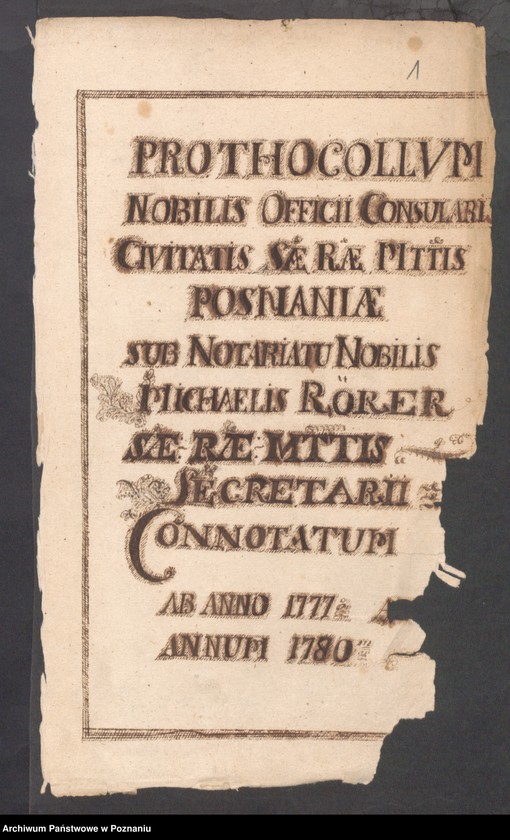 1
PROTHOCOLLVM
NOBILIS OFFICII CONSULARIS
CIVITATIS SÆ RÆ MTTIS
POSNANIÆ
SUB NOTARIATU NOBILIS
MICHAELIS RÖRER
SÆ: RÆ: MTTIS
SECRETARII
CONNOTATUM
AB ANNO 1777 A
ANNUM 1780
Archiwum Państwowe w Poznaniu